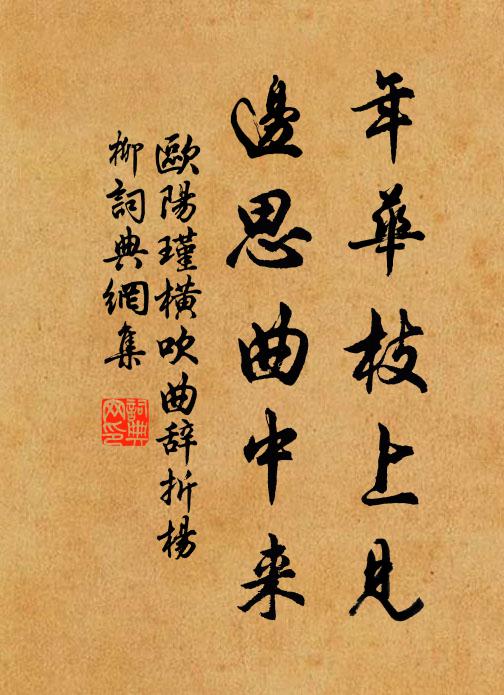 年華枝上見
邊思曲中来
歐陽瑾橫吹曲辞折楊
柳詞典網集
詞典
网印